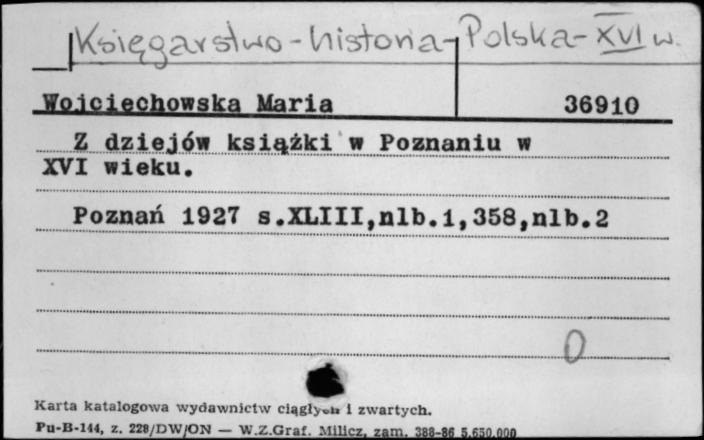 Księgarstwo - historia - Polska - XVI w.
Wojciechowska Maria 36910
Z dziejów książki w Poznaniu w
XVI wieku.
Poznań 1927 s.XLIII,nlb.1,358,nlb.2
0
Karta katalogowa wydawnictw ciągłych i zwartych.
Pu-B-144, z. 228/DW/ON — W.Z.Graf. Milicz, zam. 388-86 5.650.000